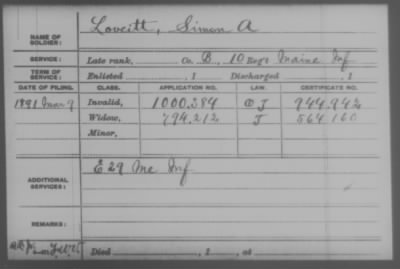 NAME OF SOLDIER: Lovcitt, Simon A
SERVICE: Late rank, Co. B, 10 Reg't Maine Inf
TERM OF SERVICE: Enlisted , 1 Discharged , 1
DATE OF FILING. CLASS. APPLICATION NO. LAW. CERTIFICATE NO.
1891 Mar 9 Invalid, 1000,384 J 944,942
Widow, 794,212 J 564,160
Minor,
ADDITIONAL SERVICES: E 29 Me Inf
REMARKS:
Died , 1 , at